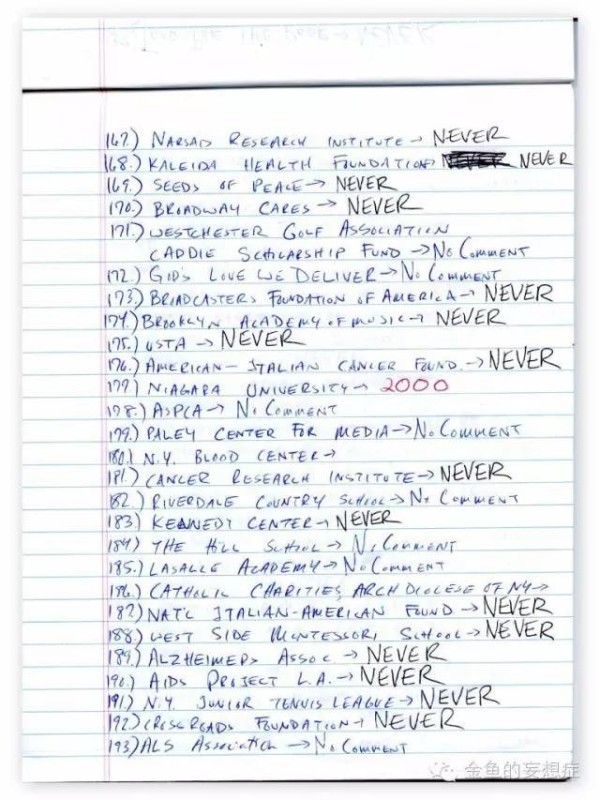 167.) NARSAD RESEARCH INSTITUTE → NEVER
168.) KALEIDA HEALTH FOUNDATION → NEVER NEVER
169.) SEEDS OF PEACE → NEVER
170.) BROADWAY CARES → NEVER
171.) WESTCHESTER GOLF ASSOCIATION
CADDIE SCHOLARSHIP FUND → NO COMMENT
172.) GOD'S LOVE WE DELIVER → NO COMMENT
173.) BROADCASTERS FOUNDATION OF AMERICA → NEVER
174.) BROOKLYN ACADEMY OF MUSIC → NEVER
175.) USTA → NEVER
176.) AMERICAN-ITALIAN CANCER FOUND. → NEVER
177) NIAGARA UNIVERSITY → 2000
178.) ASPCA → NO COMMENT
179.) PALEY CENTER FOR MEDIA → NO COMMENT
180.) N.Y. BLOOD CENTER →
181.) CANCER RESEARCH INSTITUTE → NEVER
182.) RIVERDALE COUNTRY SCHOOL → NO COMMENT
183.) KENNEDY CENTER → NEVER
184.) THE HILL SCHOOL → NO COMMENT
185.) LASALLE ACADEMY → NO COMMENT
186.) CATHOLIC CHARITIES ARCHDIOCESE OF NY →
187.) NAT'L ITALIAN-AMERICAN FOUND → NEVER
188.) WEST SIDE MONTESSORI SCHOOL → NEVER
189.) ALZHEIMERS ASSOC. → NEVER
190.) AIDS PROJECT L.A. → NEVER
191.) N.Y. JUNIOR TENNIS LEAGUE → NEVER
192.) CROSSROADS FOUNDATION → NEVER
193.) ALS ASSOCIATION → NO COMMENT
金鱼的妄想症